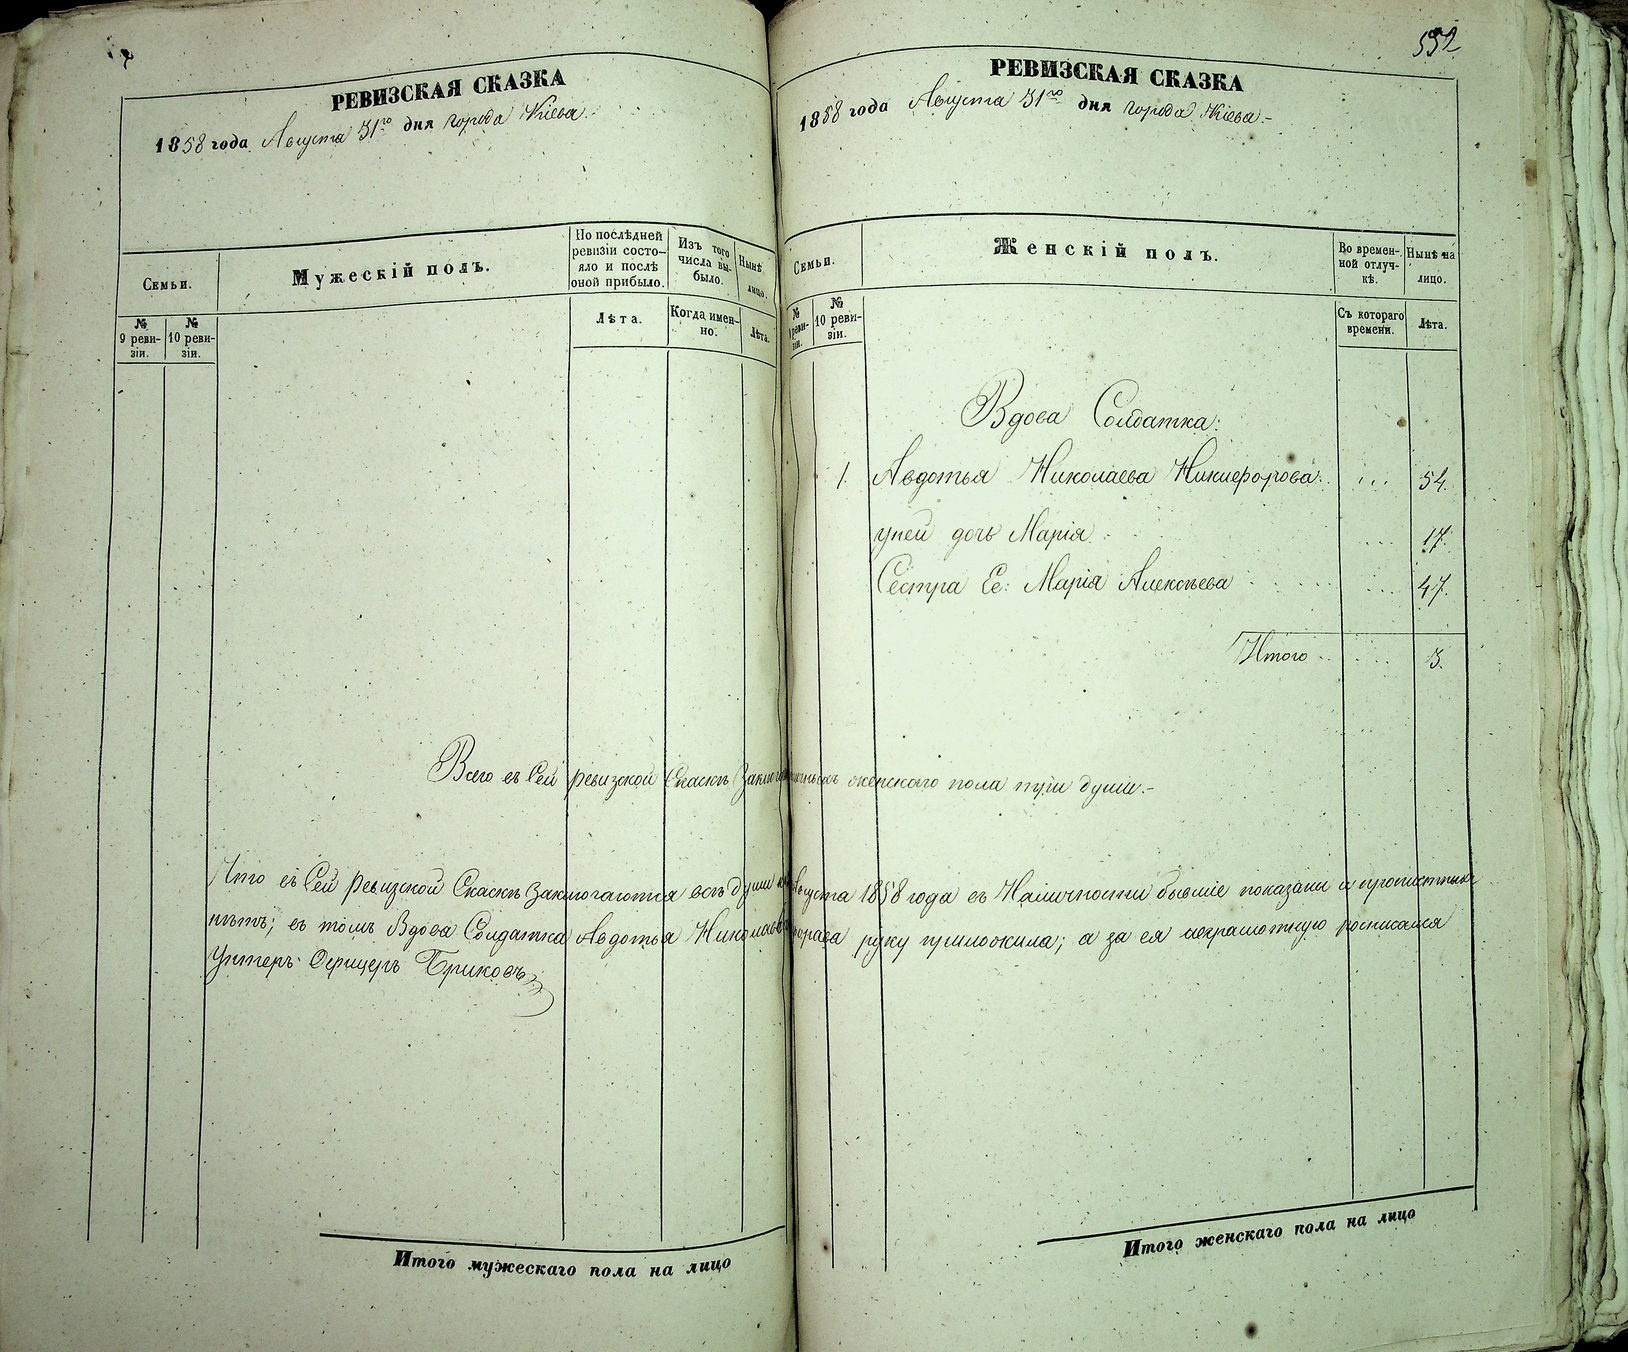 552
РЕВИЗСКАЯ СКАЗКА
1858 года Августа 31го дня города Кіева
Семьи.
Мужескій полъ.
По послѣдней ревизіи состояло и послѣ оной прибыло.
Изъ того числа выбыло.
Нынѣ лицо.
№ 9 ревизіи.
№ 10 ревизіи.
Лѣта.
Когда именно.
Лѣта.
РЕВИЗСКАЯ СКАЗКА
1858 года Августа 31го дня города Кіева.-
Семьи.
Женскій полъ.
Во временной отлучкѣ.
Нынѣ на лицо.
№ ревизіи.
№ 10 ревизіи.
Съ котораго времени.
Лѣта.
Вдова Солдатка:
1. Авдотья Николаева Никифорова: ... 54.
уней дочь Марія ... 17.
Сестра Ее: Марія Алексѣева ... 47.
Итого ... 3.
Всего въ Сей ревизской Скаскѣ женскаго пола три души.-
Что въ Сей Ревизской Скаскѣ заключаются всѣ души Августа 1858 года въ Наличности бывшіе показаны и
нѣтъ; въ томъ Вдова Солдатка Авдотья руку приложила; а за ея неграмотную росписался
Унтеръ-Офицеръ Бриковъ
Итого мужескаго пола на лицо
Итого женскаго пола на лицо